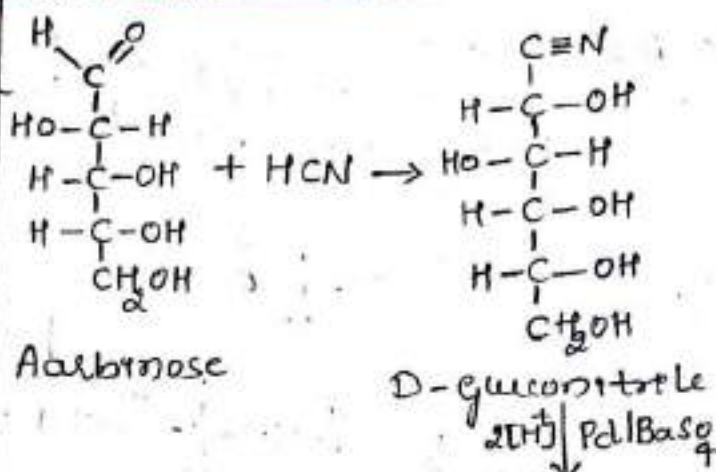 H O
C C≡N
HO-C-H H-C-OH
H-C-OH + HCN → HO-C-H
H-C-OH H-C-OH
CH2OH H-C-OH
CH2OH
Aarbinose
D-gluconitrile
2[H+] Pd|BaSO4